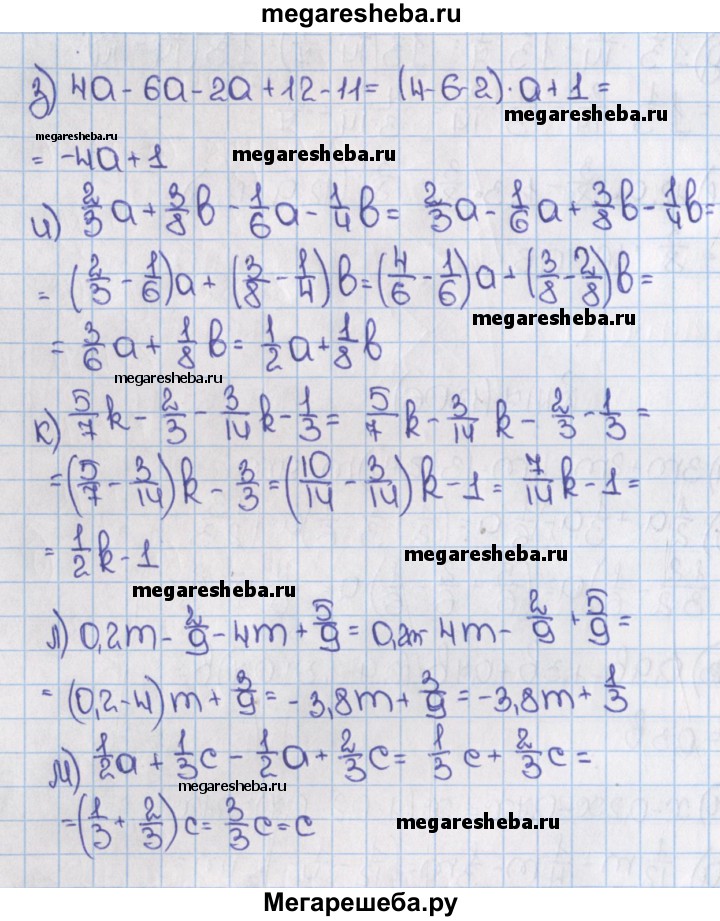 megaresheba.ru
з) 4a - 6a - 2a + 12 - 11 = (4 - 6 - 2) · a + 1 =
megaresheba.ru
megaresheba.ru
= -4a + 1
megaresheba.ru
и) 2/3 a + 3/8 b - 1/6 a - 1/4 b = 2/3 a - 1/6 a + 3/8 b - 1/4 b =
= (2/3 - 1/6) a + (3/8 - 1/4) b = (4/6 - 1/6) a + (3/8 - 2/8) b =
megaresheba.ru
= 3/6 a + 1/8 b = 1/2 a + 1/8 b
megaresheba.ru
к) 5/7 k - 2/3 - 3/14 k - 1/3 = 5/7 k - 3/14 k - 2/3 - 1/3 =
= (5/7 - 3/14) k - 3/3 = (10/14 - 3/14) k - 1 = 7/14 k - 1 =
= 1/2 k - 1
megaresheba.ru
megaresheba.ru
л) 0,2m - 2/9 - 4m + 5/9 = 0,2m - 4m - 2/9 + 5/9 =
= (0,2 - 4) m + 3/9 = -3,8m + 3/9 = -3,8m + 1/3
м) 1/2 a + 1/3 c - 1/2 a + 2/3 c = 1/3 c + 2/3 c =
megaresheba.ru
= (1/3 + 2/3) c = 3/3 c = c
megaresheba.ru
Мегарешеба.ру